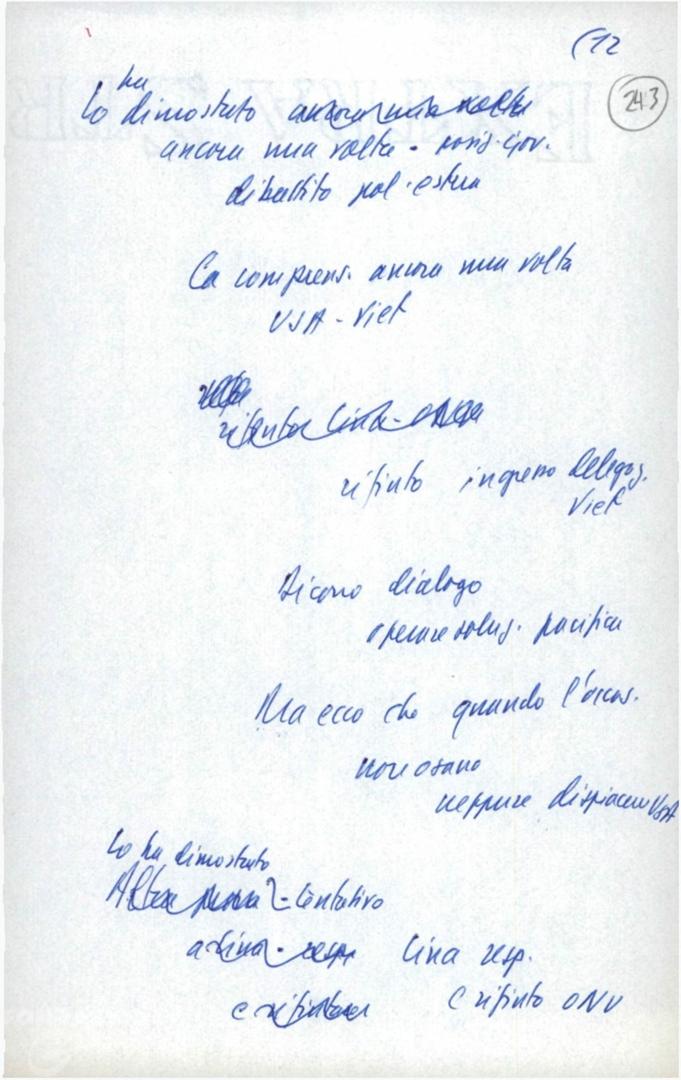 (12
243
ha
Lo dimostrato ancora una volta
ancora una volta - gov.
dibattito pol. estera
La comprens. ancora una volta
USA - Viet
Cina - ONU
rifiuto ingresso delegaz.
Viet
Dicono dialogo
operare soluz. pacifica
Ma ecco che quando l'occas.
non osano
neppure dispiacere USA
Lo ha dimostrato
Altra prova - tentativo
a Cina - resp Cina resp.
e rifiuto e rifiuto ONU